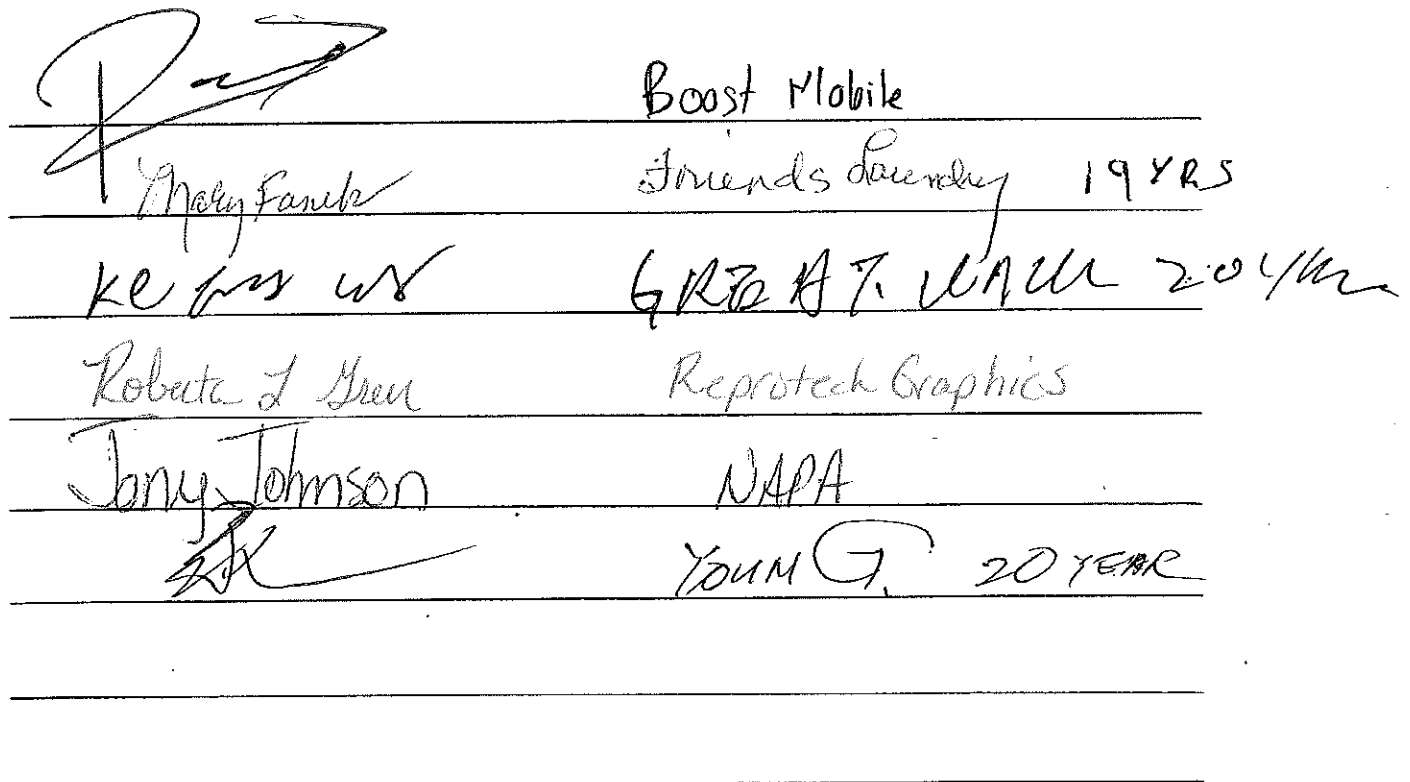 Boost Mobile
Mary Friends Laundry 19 YRS
GREAT WALL 20 YRS
Roberta L Green Reprotech Graphics
Tony Johnson NAPA
YOUN G. 20 YEAR